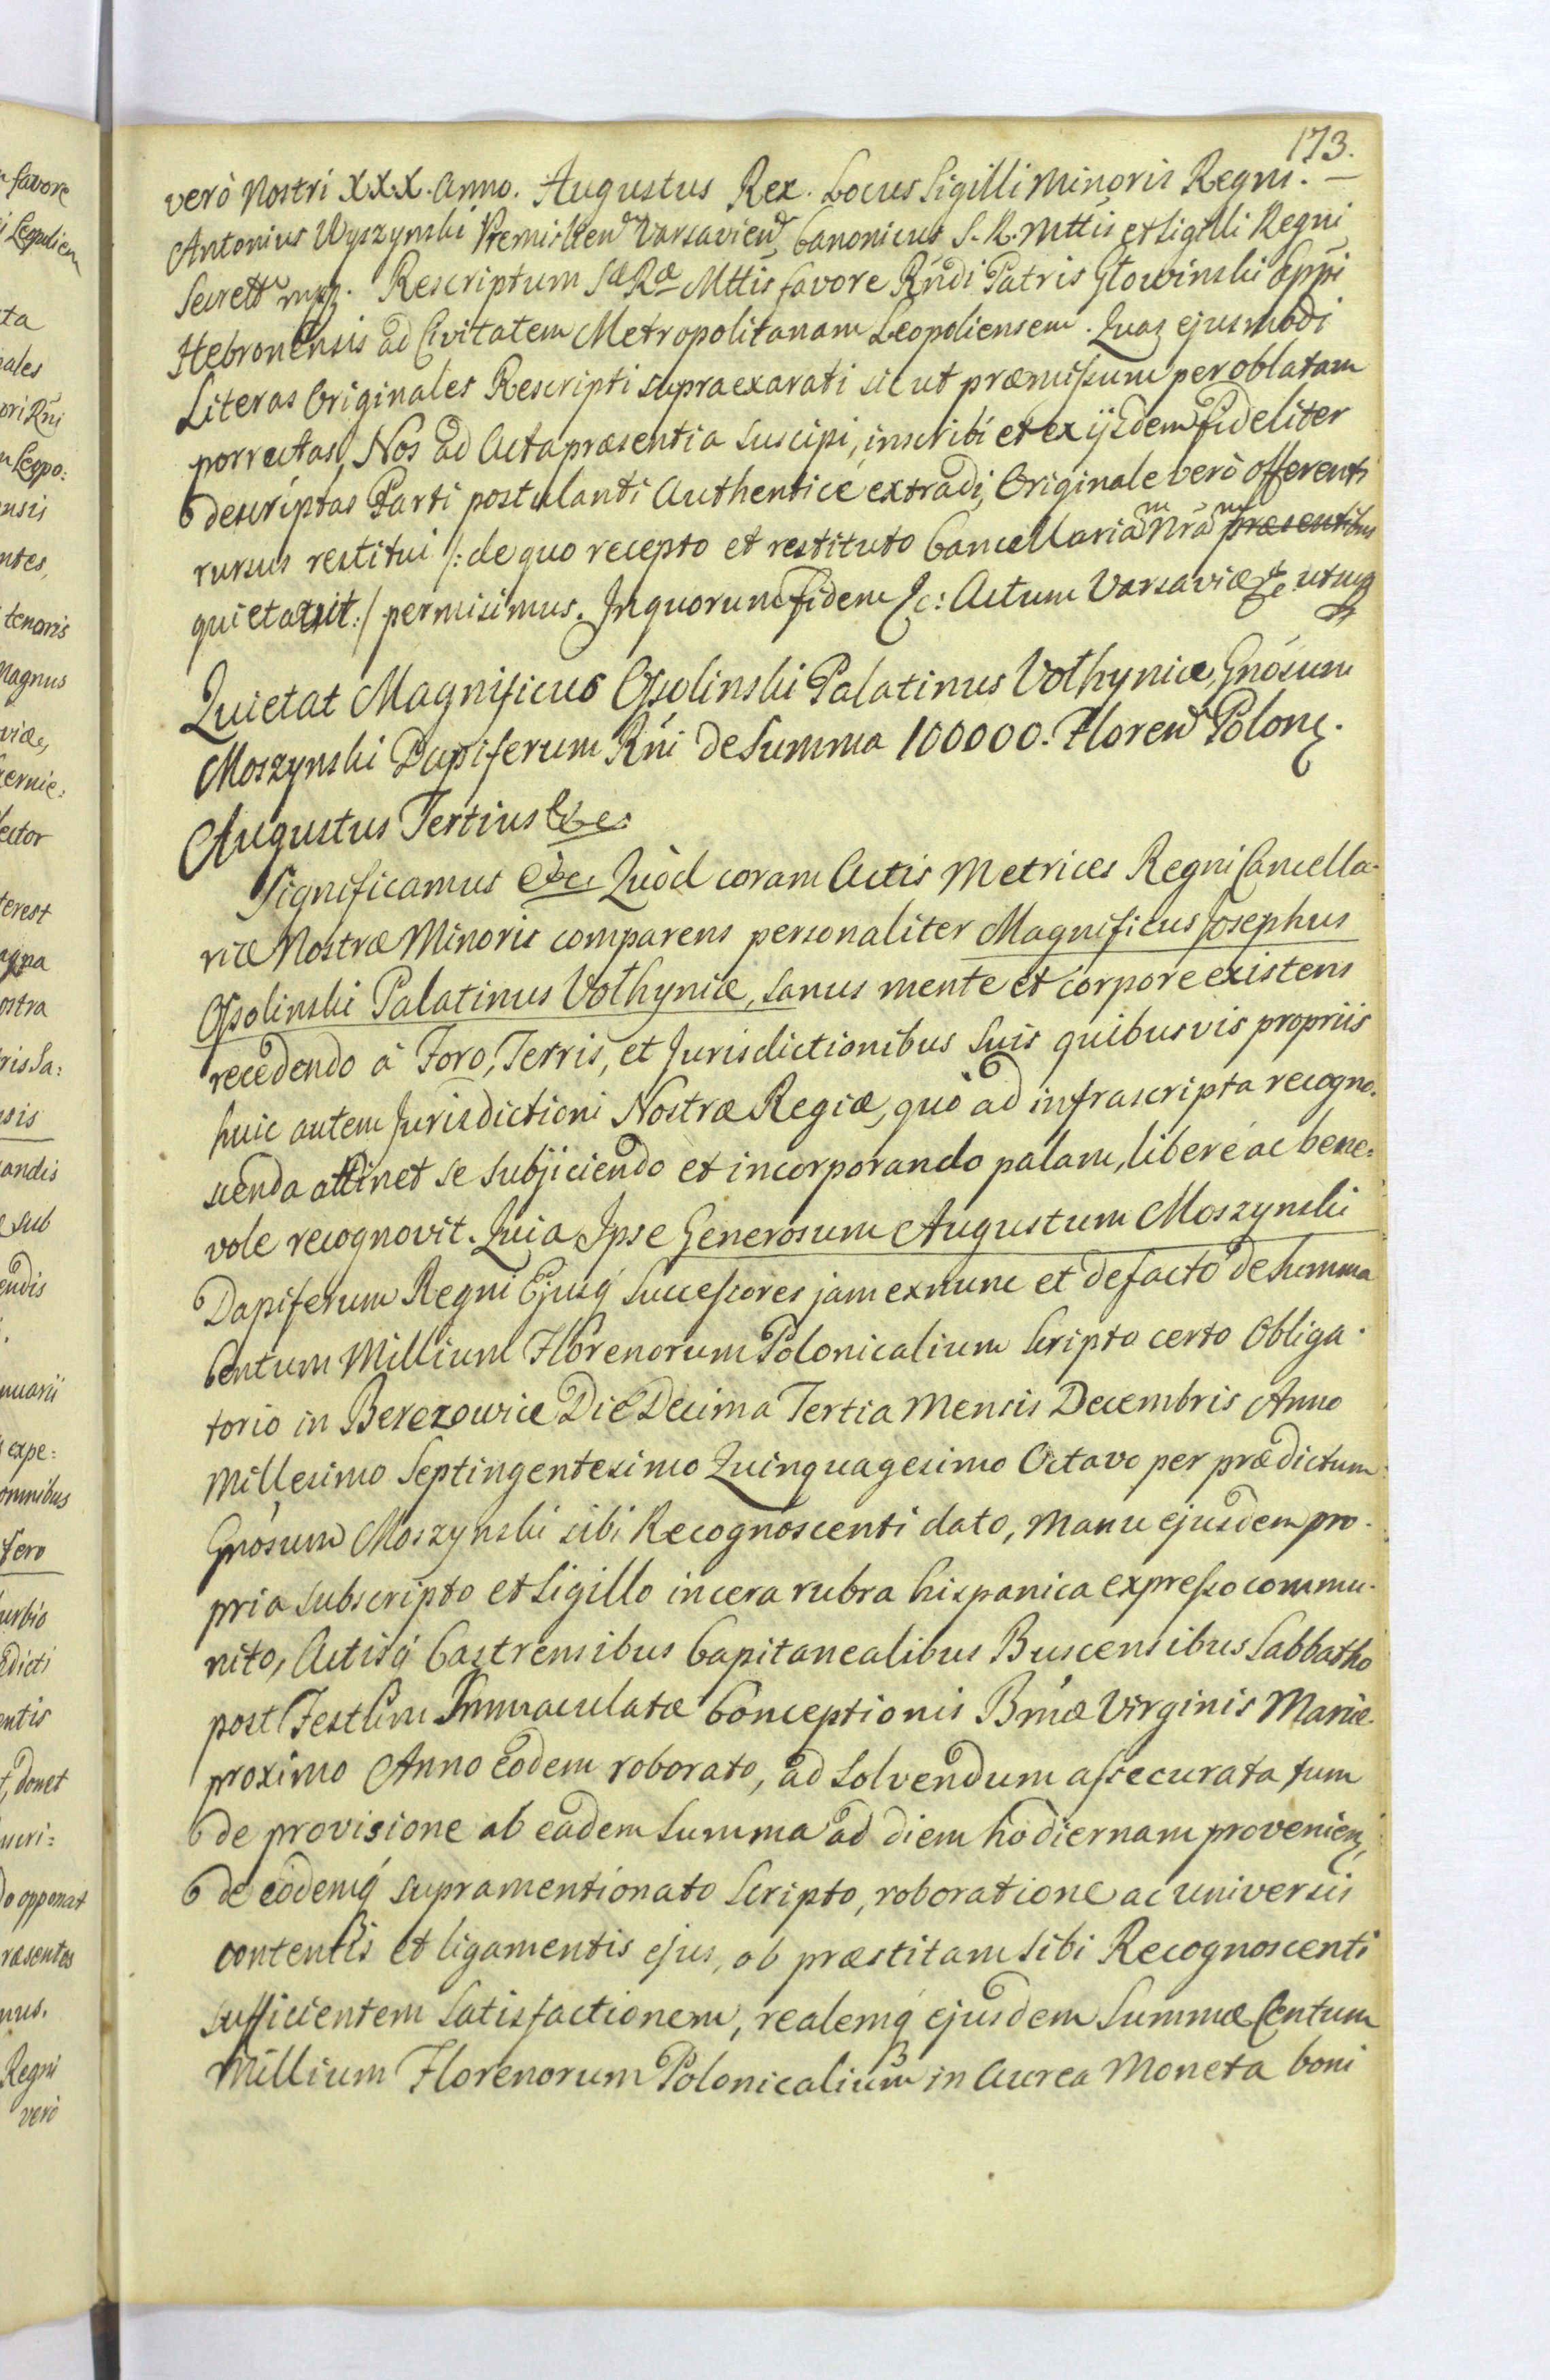 173.
verò Nostri XXX. Anno. Augustus Rex. Locus Sigilli Minoris Regni. —
Antonius Wyszynski Premislien Varsavien Canonicus S. R. Mttis et Sigilli Regni
Secrett mpp. Rescriptum Sæ Ræ Mttis favore Rńdi Patris Głowinski Eppi
Hebronensis ad Civitatem Metropolitanam Leopoliensem. Quas ejusmodi
Literas Originales Rescripti supraexarati sic ut præmissum per oblatam
porrectas, Nos ad Acta præsentia suscipi, inscribi et ex ijsdem fideliter
descriptas Parti postulanti Authenticè extradi, Originale verò offerenti
rursus restitui /: de quo recepto et restituto Cancellariam Nrām præsentibus
quietavit :/ permisimus. In quorum fidem &c: Actum Varsaviæ &c. utupra
Quietat Magnificus Ossolinski Palatinus Volhyniæ, Gnósum
Moszynski Dapiferum Rńi de Summa 100000. Floren Polon.
Augustus Tertius &c.
Significamus &c. Quòd coram Actis Metrices Regni Cancella-
riæ Nostræ Minoris comparens personaliter Magnificus Josephus
Ossolinski Palatinus Volhyniæ, sanus mente et corpore existens
recedendo à Foro, Terris, et Jurisdictionibus Suis quibusvis propriis
huic autem Jurisdictioni Nostræ Regiæ, quò ad infrascripta recogno-
scenda attinet se subjiciendo et incorporando palam, liberè ac bene-
vole recognovit. Quia Ipse Generosum Augustum Moszynski
Dapiferum Regni Ejusq́ Successores jam exnunc et defacto de Summa
Centum Millium Florenorum Polonicalium Scripto certo Obliga-
torio in Berezowice Die Decima Tertia Mensis Decembris Anno
Millesimo Septingentesimo Quinquagesimo Octavo per prædictum
Gnósum Moszynski sibi Recognoscenti dato, Manu ejusdem pro-
pria subscripto et Sigillo in cera rubra hispanica expresso commu-
nito, Actisq́ Castrensibus Capitanealibus Buscensibus Sabbatho
post Festum Immaculatæ Conceptionis Bmæ Virginis Mariæ
proximo Anno eodem roborato, ad Solvendum assecurata tum
de provisione ab eadem Summa ad diem hodiernam provenien,
de eodemq́ supramentionato Scripto, roboratione ac universis
contentis et ligamentis ejus, ob præstitam sibi Recognoscenti
sufficientem Satisfactionem, realemq́ ejusdem Summæ Centum
Millium Florenorum Polonicalium in Aurea Moneta boni